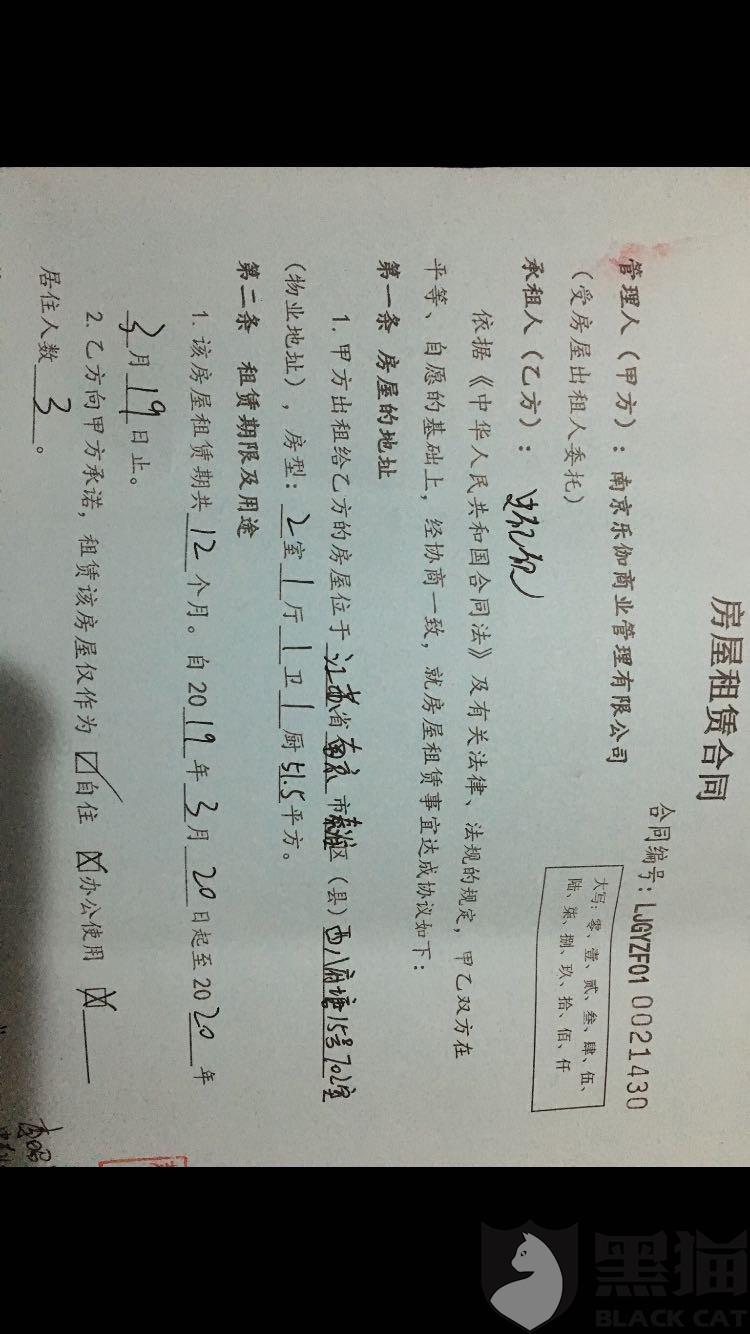 房屋租赁合同
合同编号：LJGYZF01 0021430
大写：零、壹、贰、叁、肆、伍、
陆、柒、捌、玖、拾、佰、仟
管理人（甲方）：南京乐伽商业管理有限公司
（受房屋出租人委托）
承租人（乙方）：
依据《中华人民共和国合同法》及有关法律、法规的规定，甲乙双方在
平等、自愿的基础上，经协商一致，就房屋租赁事宜达成协议如下：
第一条 房屋的地址
1. 甲方出租给乙方的房屋位于江苏省南京市 区（县）西八府塘15号702室
（物业地址），房型：2室1厅1卫1厨51.5平方。
第二条 租赁期限及用途
1. 该房屋租赁期共12个月。自2019年3月20日起至2020年
3月19日止。
2. 乙方向甲方承诺，租赁该房屋仅作为☑自住 ☒办公使用 ☒
居住人数3。
黑猫
BLACK CAT